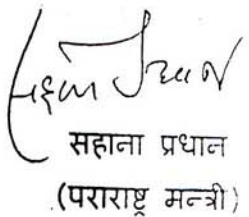 सहाना प्रधान
(परराष्ट्र मन्त्री)